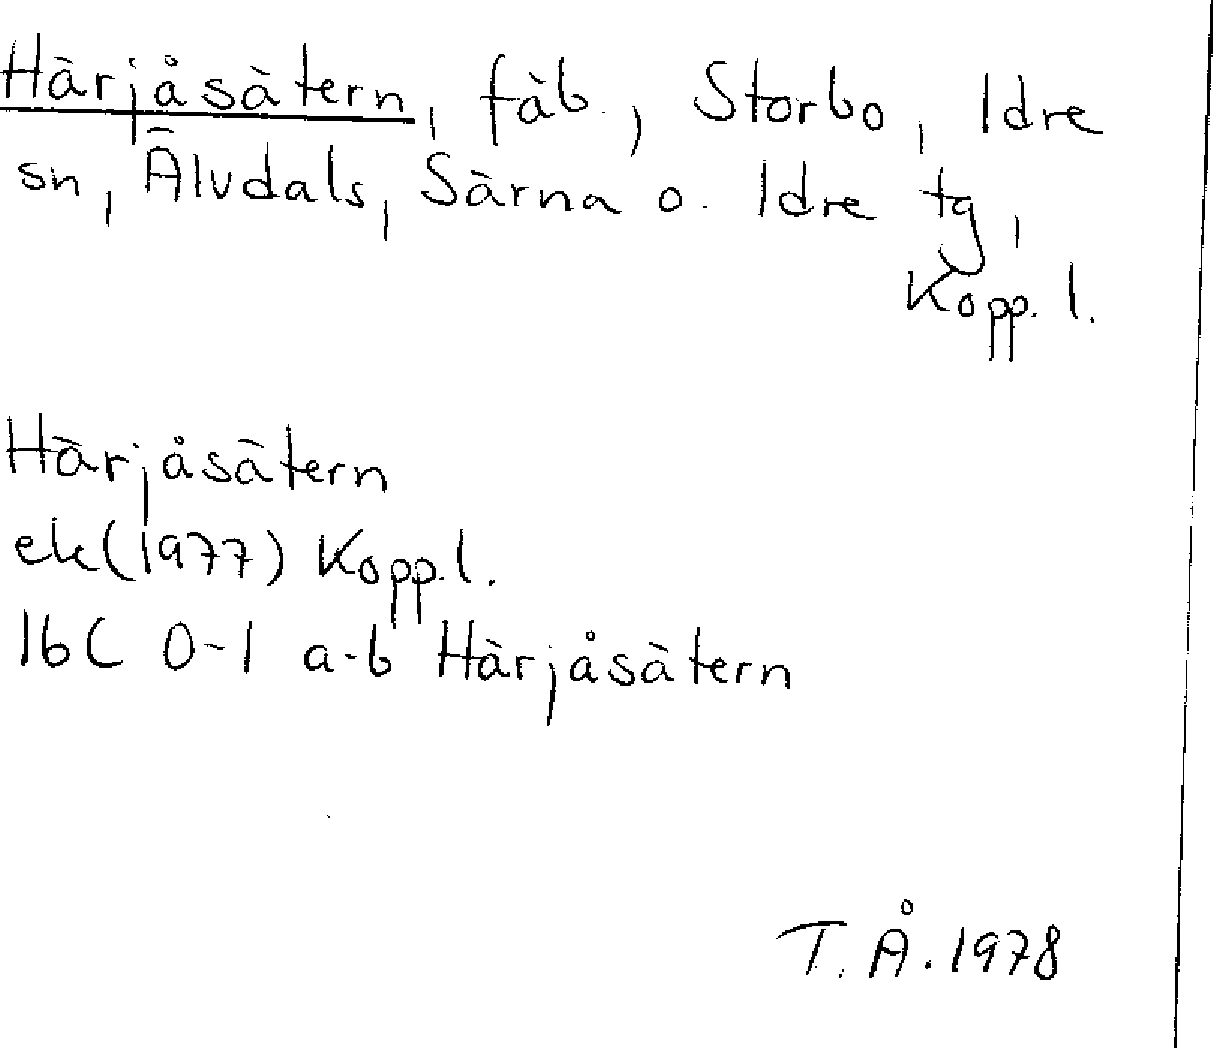 Härjåsätern, fäb., Storbo, Idre
sn, Älvdals, Särna o. Idre tg,
Kopp. l.
Härjåsätern
ek (1977) Kopp. l.
16C 0-1 a-b Härjåsätern
T. Å. 1978